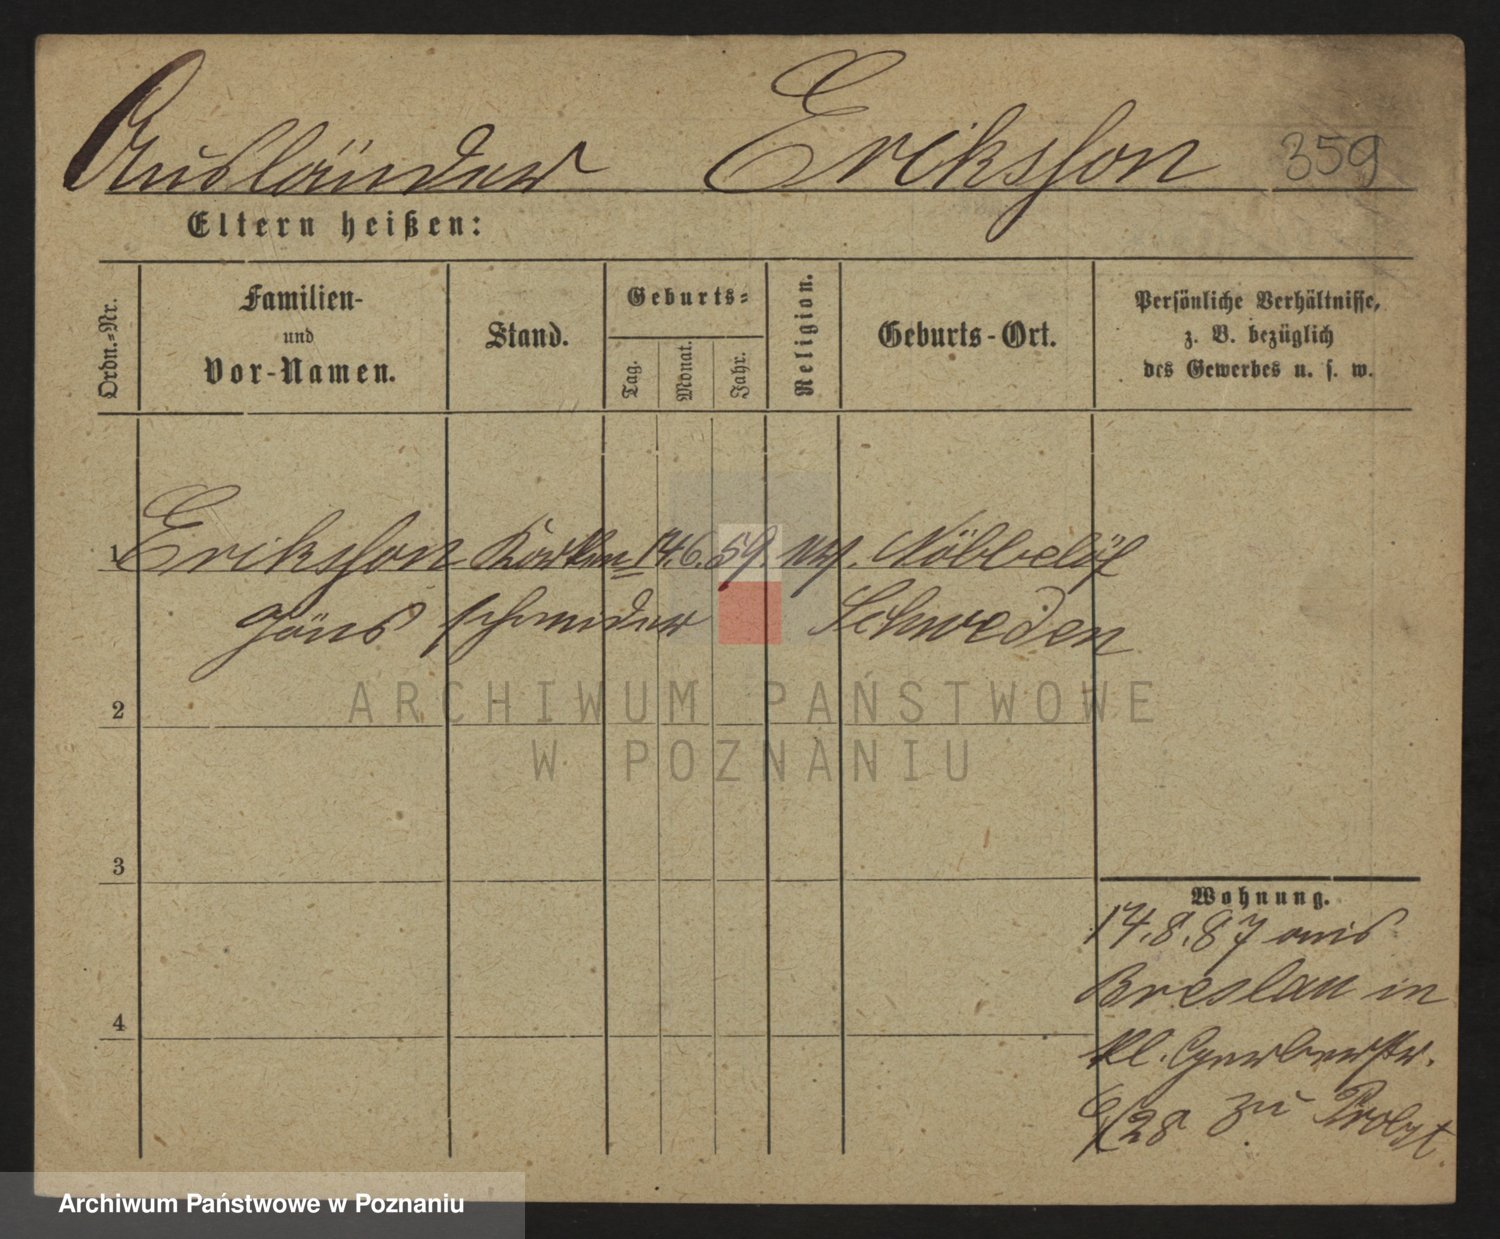 Ausländer Eriksson 359
Eltern heißen:
Ordn.-Nr.
Familien-
und
Vor-Namen.
Stand.
Geburts-
Tag.
Monat.
Jahr.
Religion.
Geburts-Ort.
Persönliche Verhältnisse,
z. B. bezüglich
des Gewerbes u. s. w.
1 Eriksson Korken= 14. 6. 59. Nöbbelöf
Jöns schneider Schweden
2
3
4
Wohnung.
14. 8. 87 aus
Breslau in
kl. Gerberstr.
6/28 zu Probst
ARCHIWUM PAŃSTWOWE
W POZNANIU
Archiwum Państwowe w Poznaniu